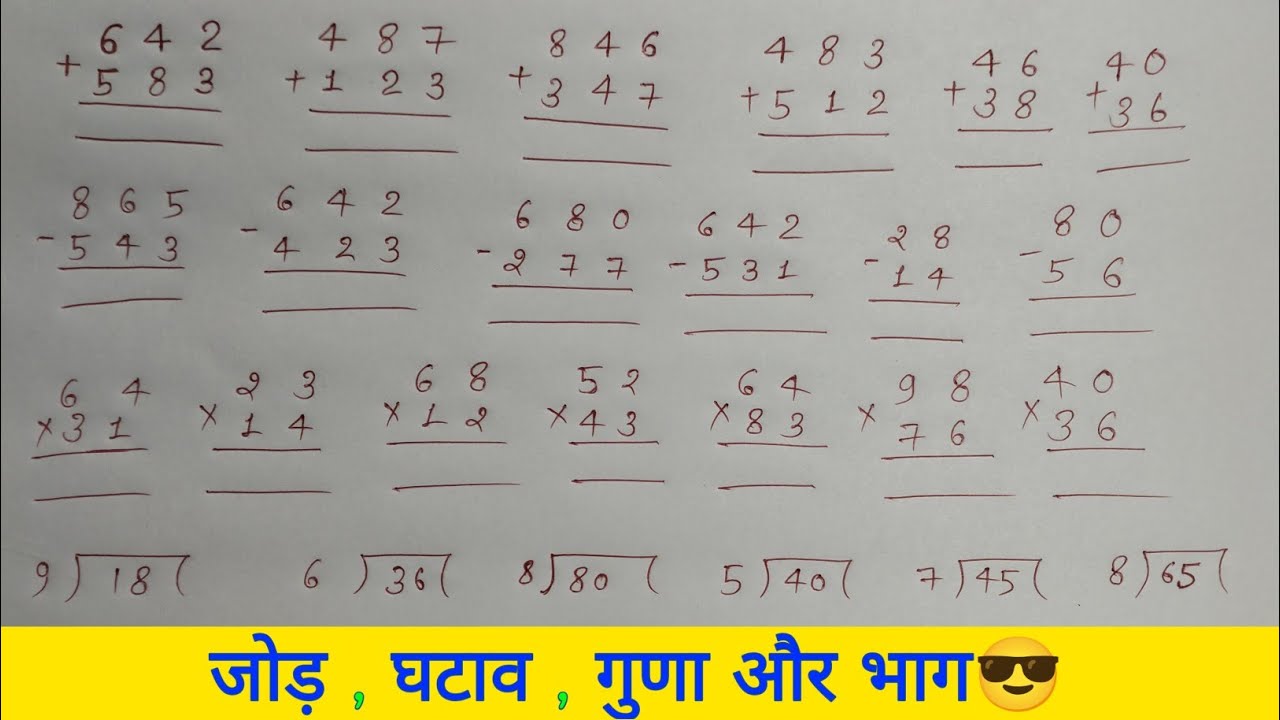 642 487 846 483 46 40
+583 +123 +347 +512 +38 +36
865 642 680 642 28 80
-543 -423 -277 -531 -14 -56
64 23 68 52 64 98 40
×31 ×14 ×12 ×43 ×83 ×76 ×36
9)18( 6)36( 8)80( 5)40( 7)45( 8)65(
जोड़ , घटाव , गुणा और भाग😎